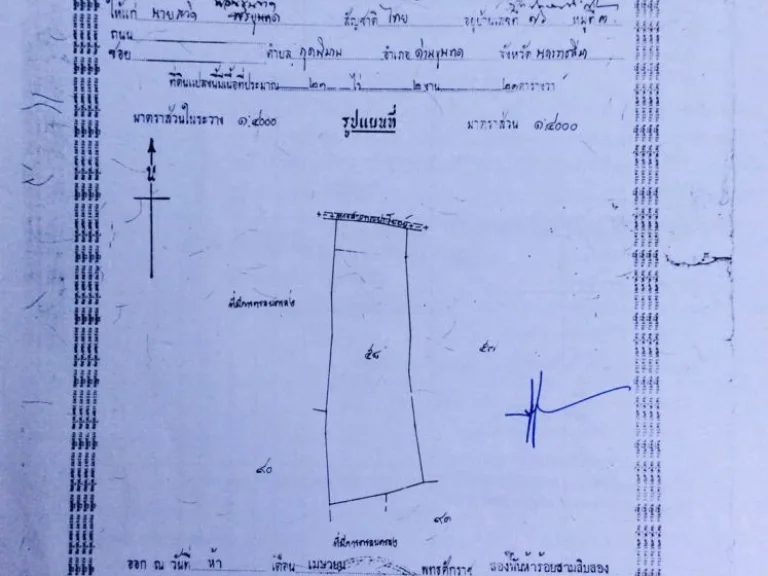 ให้แก่ นาย สัญชาติ ไทย อยู่บ้านเลขที่ ๗๖ หมู่ที่ ๓
ถนน
ซอย ตำบล กุดพิมาน อำเภอ ด่านขุนทด จังหวัด นครราชสีมา
ที่ดินแปลงนี้เนื้อที่ประมาณ ๒๓ ไร่ ๒ งาน ๒๓ ตารางวา
มาตราส่วนในระวาง ๑:๔๐๐๐ รูปแผนที่ มาตราส่วน ๑:๔๐๐๐
น
ทางสาธารณประโยชน์
ที่มีการครอบครอง
๕๘ ๕๗
๘๐
๙๓
ที่มีการครอบครอง
ออก ณ วันที่ ห้า เดือน เมษายน พุทธศักราช สองพันห้าร้อยสามสิบสอง